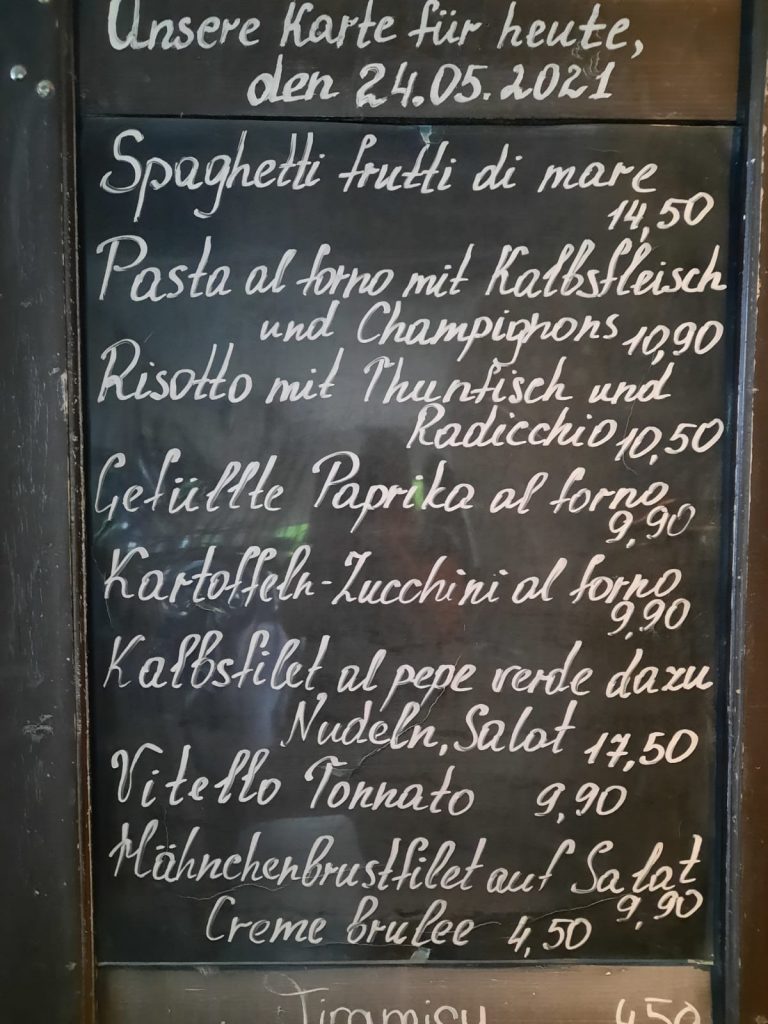 Unsere Karte für heute,
den 24.05.2021
Spaghetti frutti di mare
14,50
Pasta al forno mit Kalbsfleisch
und Champignons 10,90
Risotto mit Thunfisch und
Radicchio 10,50
Gefüllte Paprika al forno
9,90
Kartoffeln-Zucchini al forno
9,90
Kalbsfilet al pepe verde dazu
Nudeln, Salat 17,50
Vitello Tonnato 9,90
Hähnchenbrustfilet auf Salat
9,90
Creme brulee 4,50
Tirammisu 4,50